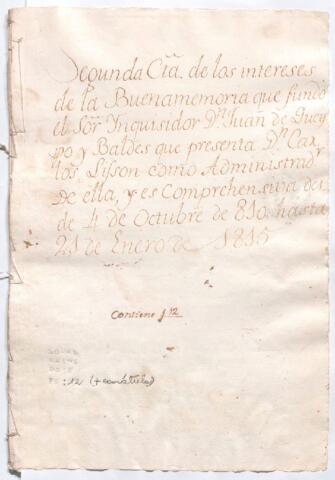 Segunda Cta. de los intereses
de la Buenamemoria que fundó
el Sor. Inquisidor Dn. Juan de Quey
po y Baldes que presenta Dn. Car
los, Lisson como Administrad.
de ella, y es Comprehensiva des
de 4 de Octubre de 810. hasta
21 de Enero de 1815
Contiene f. 12
: 12 (+ carátula)